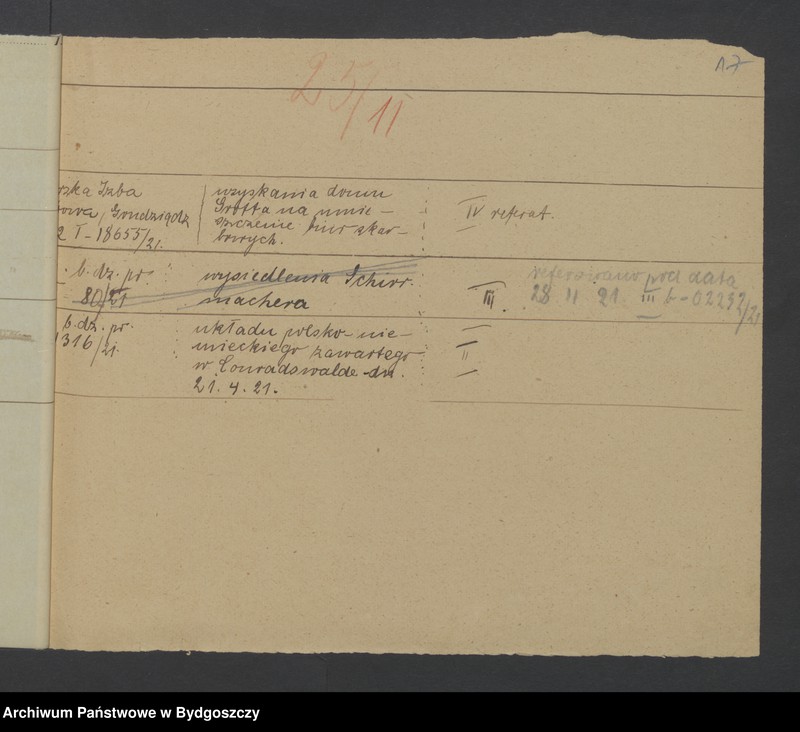 17
25/11
Izba
owa, Grudziądz
2 T-18655/21.
uzyskania domu
Grotta na umie-
szczenie biur skar-
bowych.
IV referat.
b. dz. pr.
80/21
wysiedlenia Schirr-
machera
III.
referowano pod data
28 II 21. III b-02232/21
b. dz. pr.
1316/21.
układu polsko-nie-
mieckiego zawartego
w Conradswalde dn.
21. 4. 21.
II
Archiwum Państwowe w Bydgoszczy